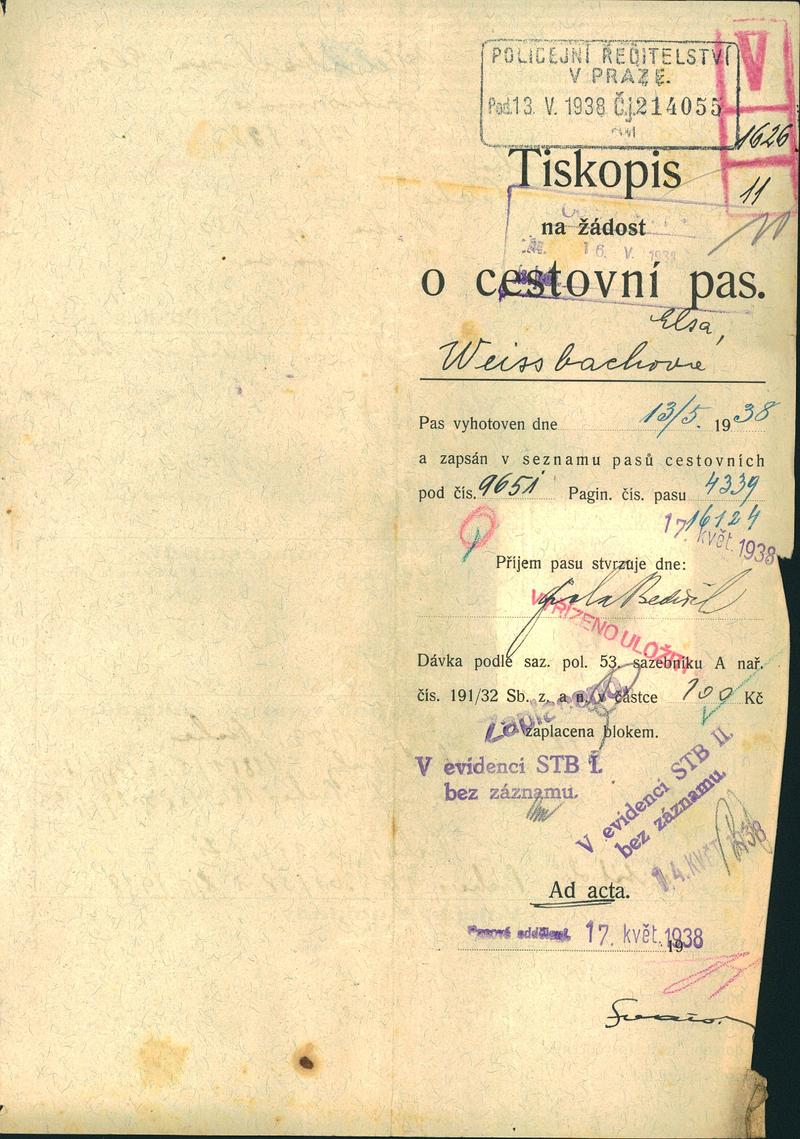 POLICEJNÍ ŘEDITELSTVÍ
V PRAZE.
Pod. 13. V. 1938 Čj. 214055
V
1626
11
Tiskopis
na žádost
16. V. 1938
o cestovní pas.
Elsa,
Weissbachova
Pas vyhotoven dne 13/5. 1938
a zapsán v seznamu pasů cestovních
pod čís. 9651 Pagin. čís. pasu 4339
16124
17. květ. 1938
Příjem pasu stvrzuje dne:
VYŘIZENO ULOŽIT
Dávka podle saz. pol. 53. sazebníku A nař.
čís. 191/32 Sb. z. a n. v částce 100 Kč
Zaplaceno
zaplacena blokem.
V evidenci STB I.
bez záznamu.
V evidenci STB II.
bez záznamu.
14. KVĚT. 1938
Ad acta.
Pasové oddělení. 17. květ. 1938
19